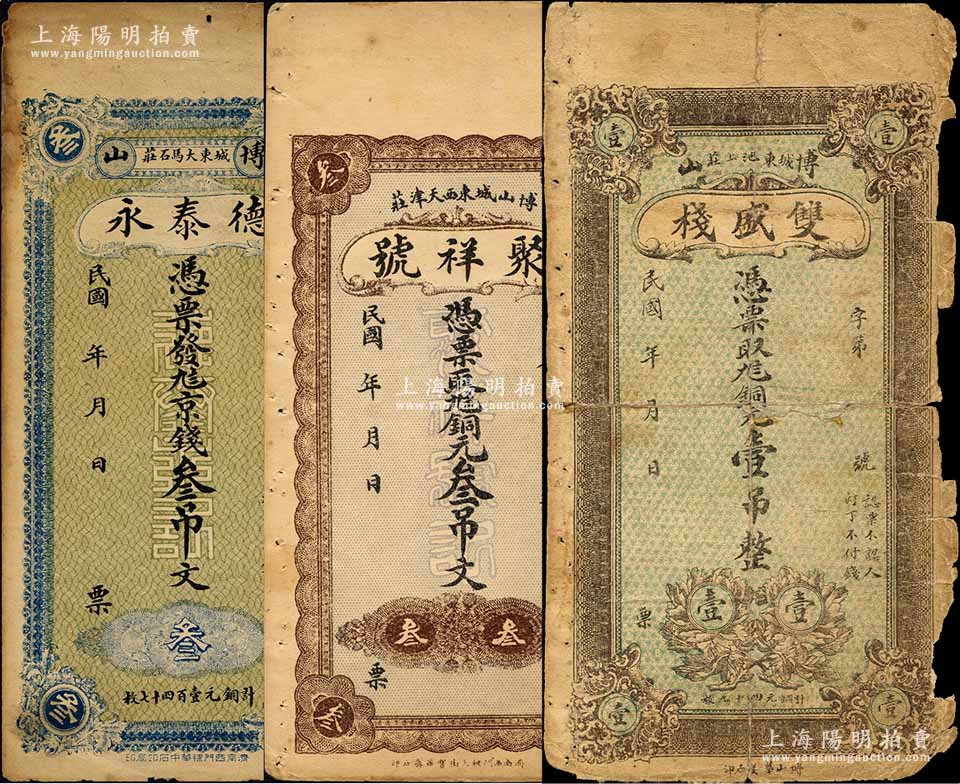 上海陽明拍賣
www.yangmingauction.com
叁
博 城東大馬石莊 山
德泰永
憑票發㐂京錢叁吊文
民國 年 月 日
票
叁
計銅元壹百四十七枚
叁
濟南西門裡華中石印局印
叁
博山城東西天津莊
聚祥號
憑票取銅元叁吊文
民國 年 月 日
票
叁 叁
叁
上海陽明拍賣
www.yangmingauction.com
壹 壹
博 城東池上莊 山
雙盛棧
字第 號
認票不認人
憑票取銅元壹吊整
民國 年 月 日
票
壹 壹
計銅元四十九枚
壹 壹
上海陽明拍賣
www.yangmingauction.com